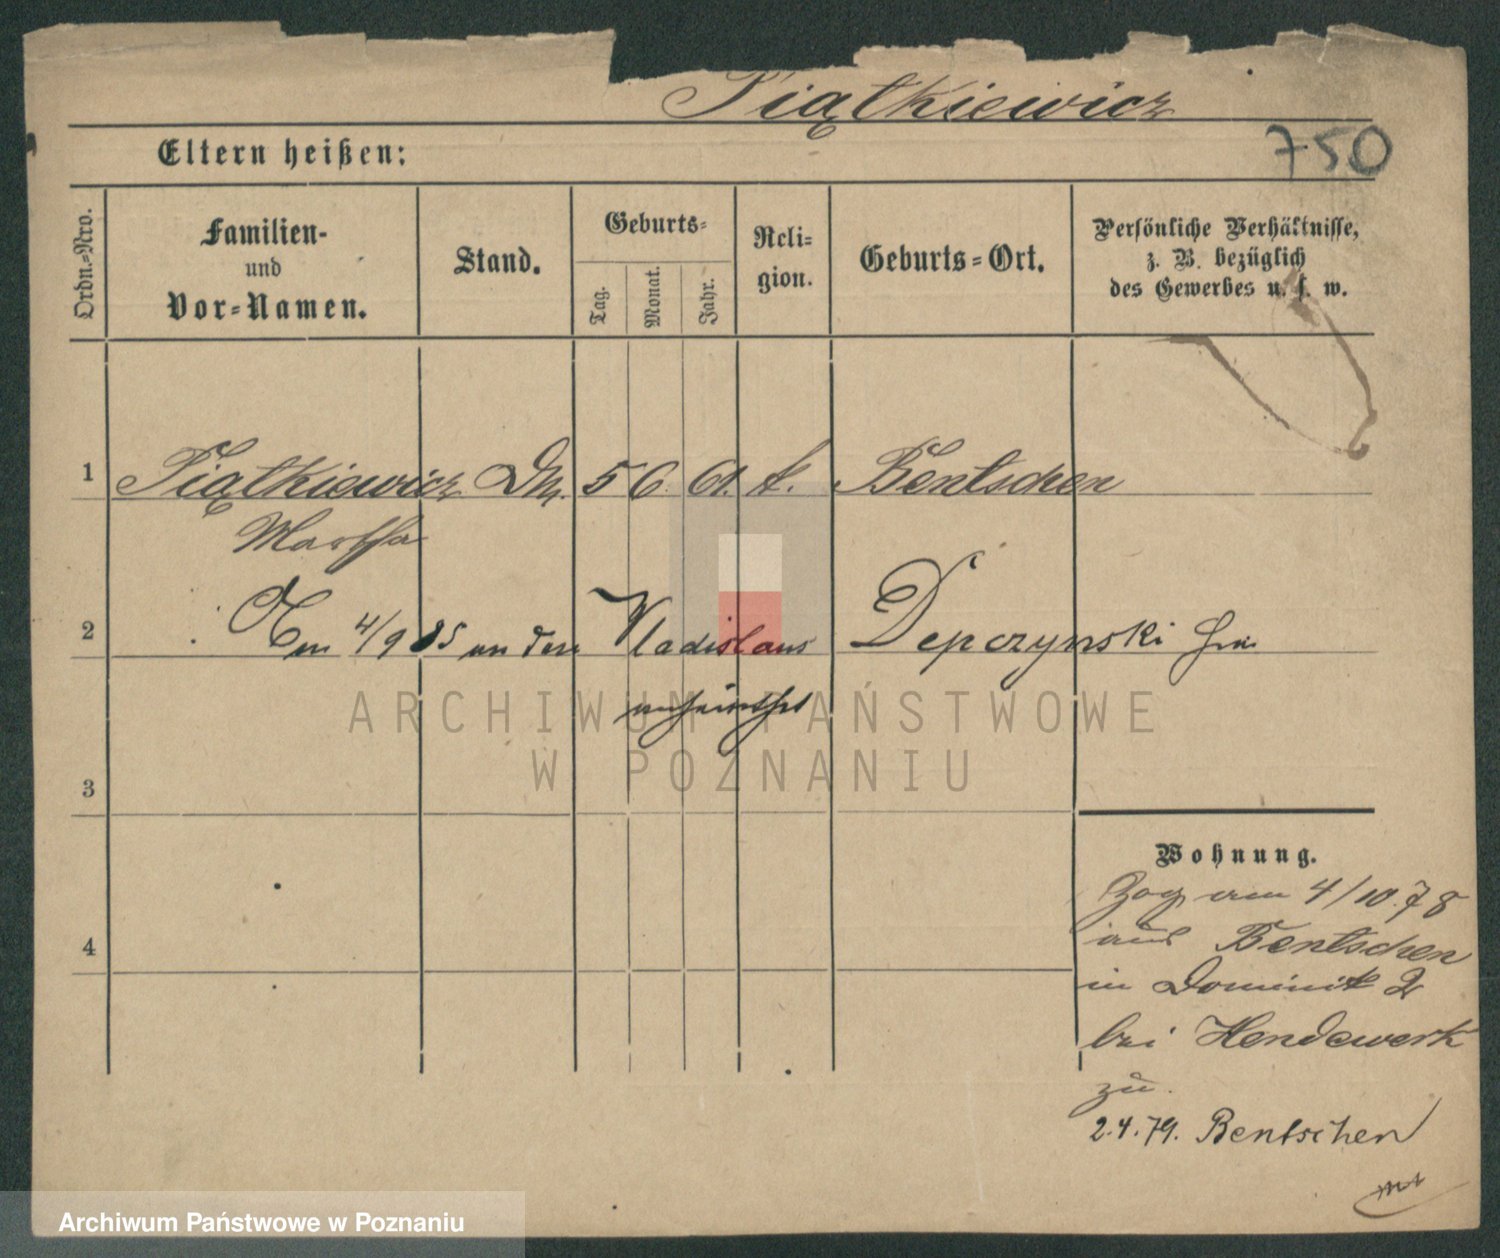 Piątkiewicz
Eltern heißen:
750
Ordn.-Nro.
Familien-
und
Vor-Namen.
Stand.
Geburts-
Tag.
Monat.
Jahr.
Reli-
gion.
Geburts-Ort.
Persönliche Verhältnisse,
z. B. bezüglich
des Gewerbes u. s. w.
1 Piątkiewicz 5 6. 61. k. Bentschen
Martha
2 Am 4/9 85 an den Vladislaus Depczynski hier
verheirathet
3
4
Wohnung.
Zog am 4/10.78
aus Bentschen
in Dominik 2
bei Hendewerk
zu.
2.4.79. Bentschen
ARCHIWUM PAŃSTWOWE
W POZNANIU
Archiwum Państwowe w Poznaniu